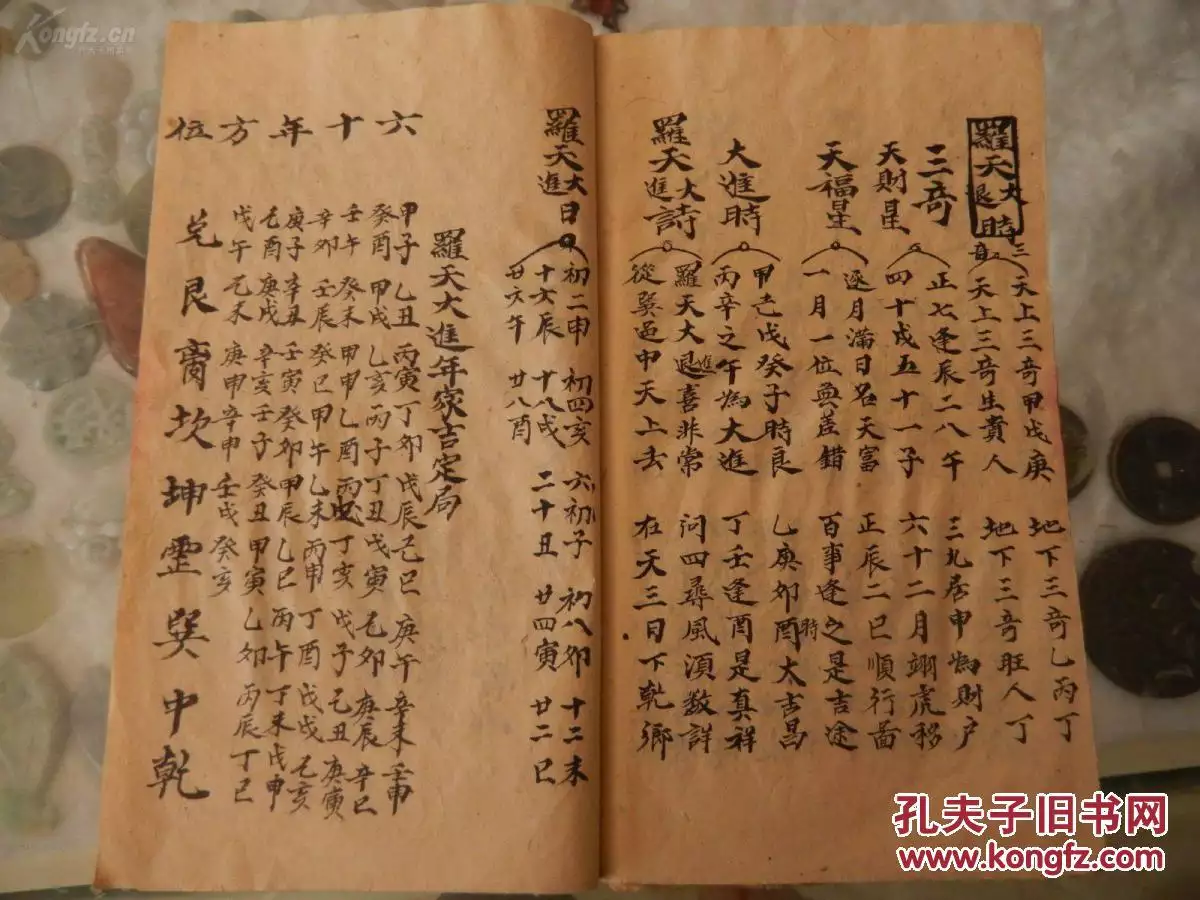 羅天大退時
三奇 天上三奇甲戊庚 地下三奇乙丙丁
天上三奇生貴人 地下三奇旺人丁
天財星 正七逢辰二八午 三九居申為財户
四十戌五十一子 六十二月翊虎移
天福星 逐月滿日名天富 正辰二巳順行面
一月一位無差錯 百事逢之是吉途
大進時 甲己戊癸子時良 乙庚卯酉時大吉昌
丙辛之午為大進 丁壬逢酉是真祥
羅天大進詩 羅天大退進喜非常 问四尋風須数詳
從巽過中天上去 在天三日下乾鄉
羅天大進日 初二申 初四亥 六初子 初八卯 十二未
十六辰 十八戌 二十丑 廿四寅 廿二巳
廿六午 廿八酉
羅天大進年家吉定局
六十年方位
甲子 乙丑 丙寅 丁卯 戊辰 己巳 庚午 辛未 壬申
癸酉 甲戌 乙亥 丙子 丁丑 戊寅 己卯 庚辰 辛巳
壬午 癸未 甲申 乙酉 丙戌 丁亥 戊子 己丑 庚寅
辛卯 壬辰 癸巳 甲午 乙未 丙申 丁酉 戊戌 己亥
庚子 辛丑 壬寅 癸卯 甲辰 乙巳 丙午 丁未 戊申
己酉 庚戌 辛亥 壬子 癸丑 甲寅 乙卯 丙辰 丁巳
戊午 己未 庚申 辛申 壬戌 癸亥
兌 艮 离 坎 坤 震 巽 中 乾
Kongfz.cn
孔夫子旧书网
www.kongfz.com